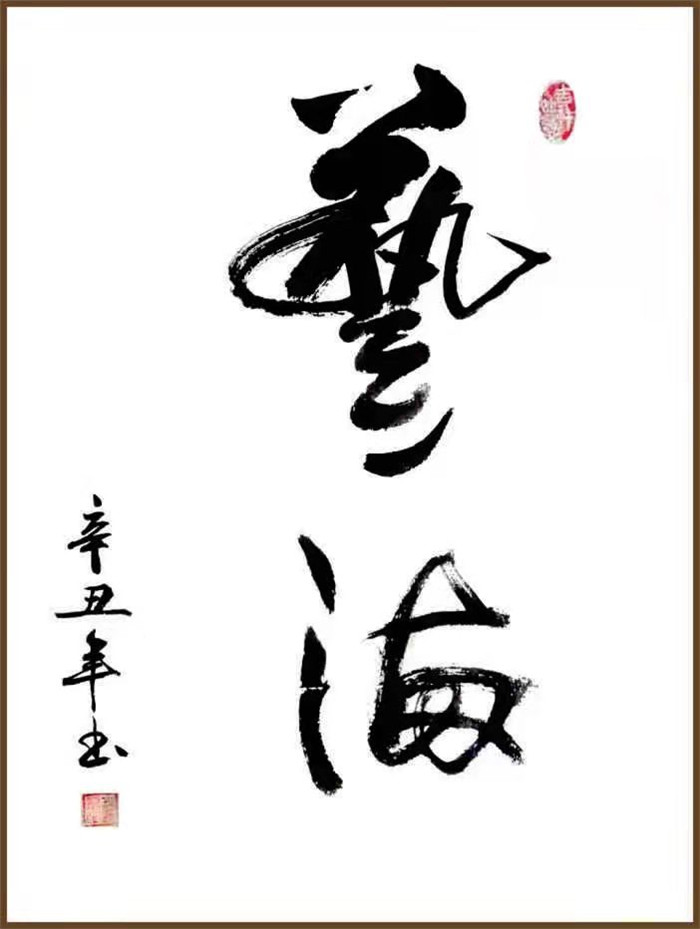 藝海
辛丑年书